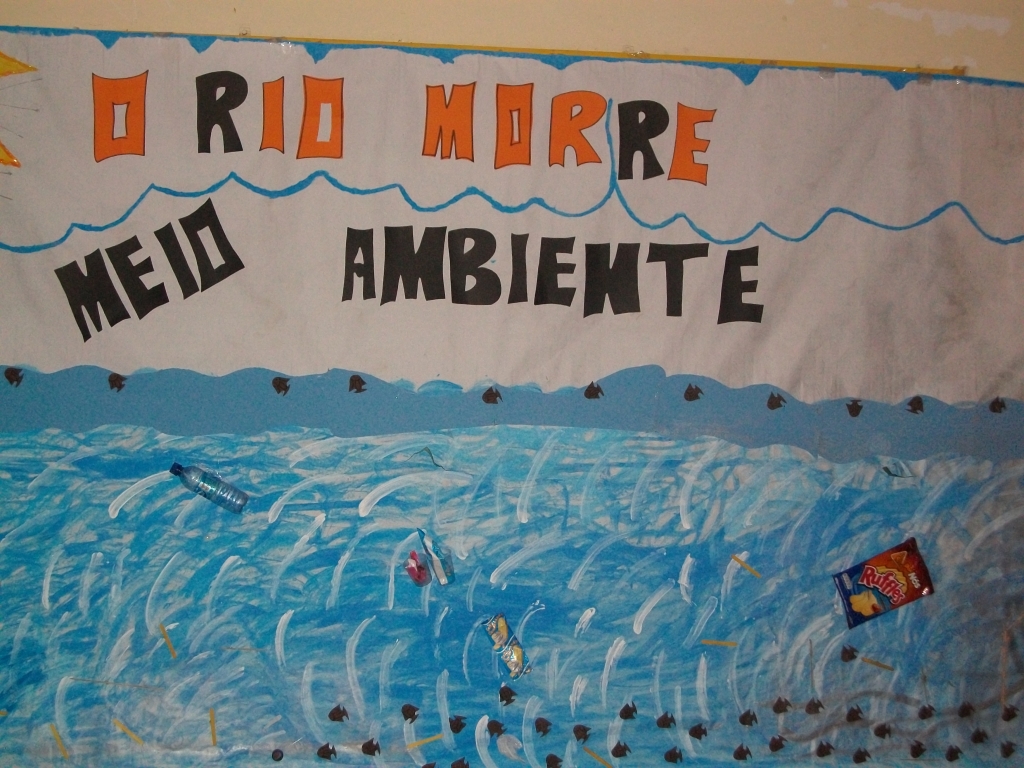 O RIO MORRE
MEIO AMBIENTE
Ruffles